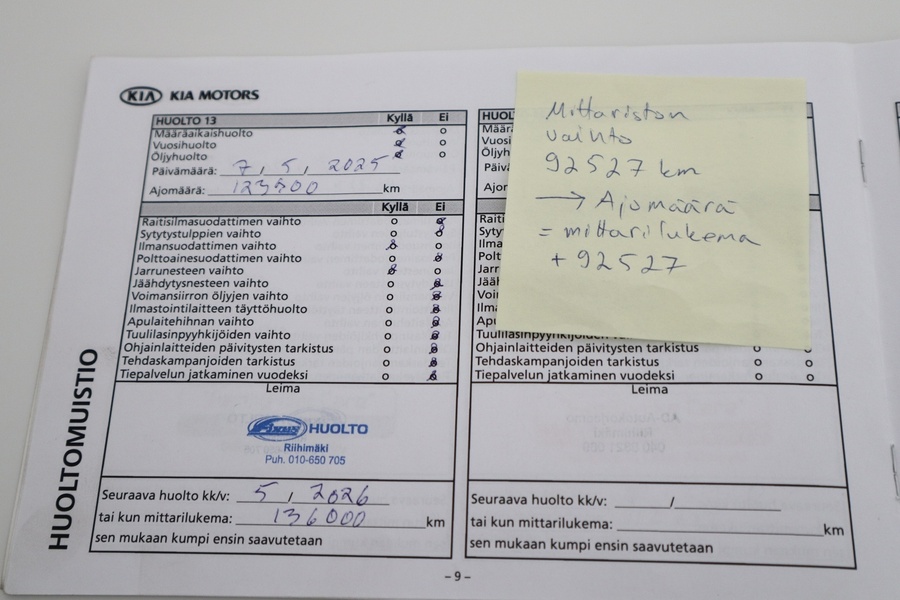 KIA KIA MOTORS
HUOLTO 13 Kyllä Ei
Määräaikaishuolto
Vuosihuolto
Öljyhuolto
Päivämäärä: 7, 5, 2025
Ajomäärä: 123500 km
Kyllä Ei
Raitisilmasuodattimen vaihto
Sytytystulppien vaihto
Ilmansuodattimen vaihto
Polttoainesuodattimen vaihto
Jarrunesteen vaihto
Jäähdytysnesteen vaihto
Voimansiirron öljyjen vaihto
Ilmastointilaitteen täyttöhuolto
Apulaitehihnan vaihto
Tuulilasinpyyhkijöiden vaihto
Ohjainlaitteiden päivitysten tarkistus
Tehdaskampanjoiden tarkistus
Tiepalvelun jatkaminen vuodeksi
Leima
HUOLTO
Riihimäki
Puh. 010-650 705
Seuraava huolto kk/v: 5 / 2026
tai kun mittarilukema: 136000 km
sen mukaan kumpi ensin saavutetaan
HUOLTOMUISTIO
Mittariston
vaihto
92527 km
→ Ajomäärä
= mittarilukema
+ 92527
Ohjainlaitteiden päivitysten tarkistus
Tehdaskampanjoiden tarkistus
Tiepalvelun jatkaminen vuodeksi
Leima
Seuraava huolto kk/v: /
tai kun mittarilukema: km
sen mukaan kumpi ensin saavutetaan
- 9 -